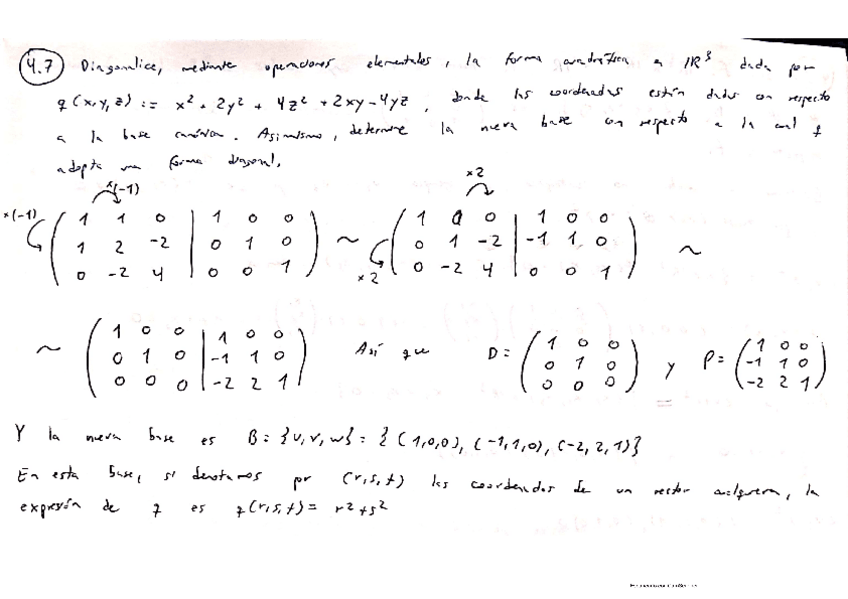 4.7) Diagonalice, mediante operaciones elementales, la forma cuadrática a IR³ dada por
q(x,y,z) := x² + 2y² + 4z² + 2xy - 4yz, donde las coordenadas están dadas con respecto
a la base canónica. Asimismo, determine la nueva base con respecto a la cual q
adopta una forma diagonal.
x(-1) x2
x(-1) ( 1 1 0 | 1 0 0 ) ~ ( 1 0 0 | 1 0 0 )
( 1 2 -2 | 0 1 0 ) ( 0 1 -2 | -1 1 0 ) ~
( 0 -2 4 | 0 0 1 ) x2 ( 0 -2 4 | 0 0 1 )
~ ( 1 0 0 | 1 0 0 ) Así que D = ( 1 0 0 ) y P = ( 1 0 0 )
( 0 1 0 | -1 1 0 ) ( 0 1 0 ) ( -1 1 0 )
( 0 0 0 | -2 2 1 ) ( 0 0 0 ) ( -2 2 1 )
Y la nueva base es B = {u, v, w} = { (1,0,0), (-1,1,0), (-2,2,1)}
En esta base, si denotamos por (r,s,t) las coordenadas de un vector cualquiera, la
expresión de q es q(r,s,t) = r² + s²